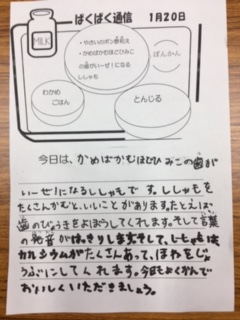 ぱくぱく通信　1月20日
MILK
・やさいのポン酢和え
・かめばかむほどひみこの歯がいーぜ！になるししゃも
ぽんかん
わかめごはん
とんじる
今日は、かめばかむほどひみこの歯が
いーぜ！になるししゃもです。ししゃもを
たくさんかむと、いいことがあります。たとえば、
歯のびょうきをよぼうしてくれます。そして言葉
の発音がはっきりします。そして、ししゃもは
カルシウムがたくさんあって、ほねをじょ
うぶにしてくれます。今日もよくかんで
おいしくいただきましょう。